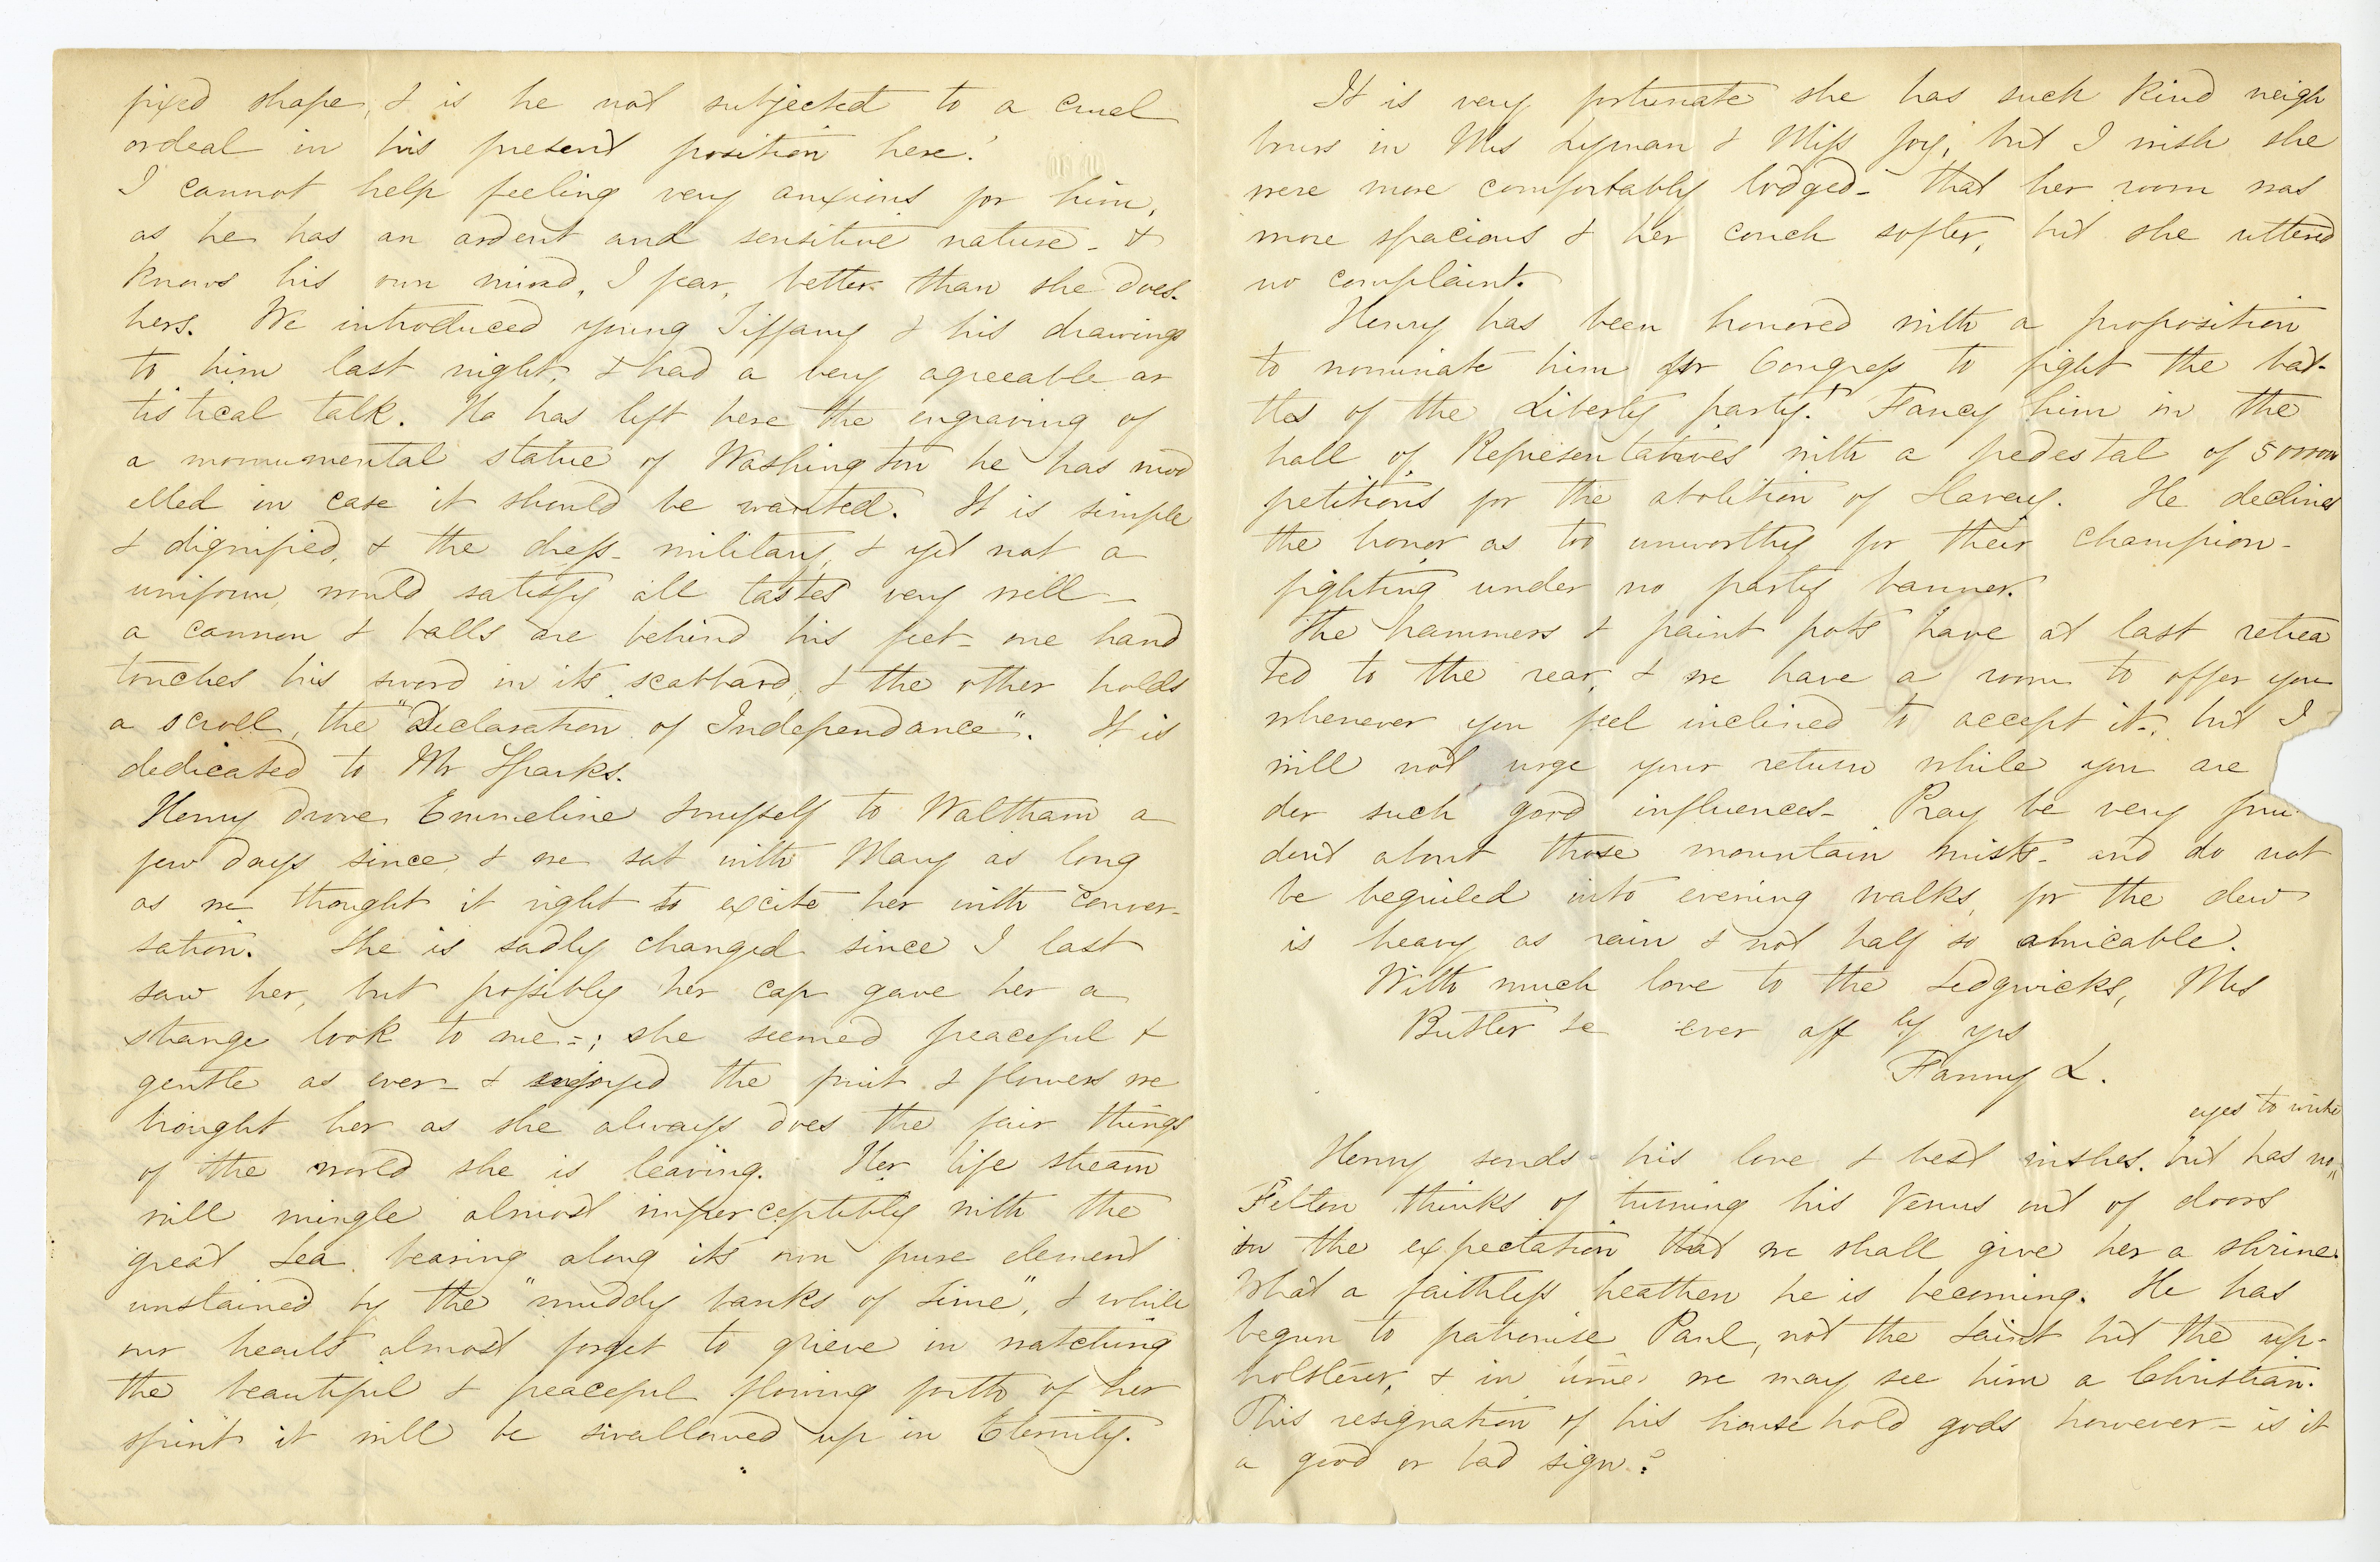 fixed shape, & is he not subjected to a cruel
ordeal in his present position here?
I cannot help feeling very anxious for him,
as he has an ardent and sensitive nature - &
knows his own mind, I fear, better than she does
hers. We introduced young Tiffany & his drawings
to him last night, & had a very agreeable ar
tistical talk. He has left here the engraving of
a monumental statue of Washington he has mod
elled in case it should be wanted. It is simple
& dignified, & the dress military, & yet not a
uniform, would satisfy all tastes very well -
a cannon & balls are behind his feet - one hand
touches his sword in its scabbard, & the other holds
a scroll, the "Declaration of Independance". It is
dedicated to Mr Sparks.
Henry drove Emmeline & myself to Waltham a
few days since, & we sat with Mary as long
as we thought it right to excite her with conver-
sation. She is sadly changed since I last
saw her, but possibly her cap gave her a
strange look to me -; she seemed peaceful &
gentle as ever - & enjoyed the fruit & flowers we
brought her as she always does the fair things
of the world she is leaving. Her life stream
will mingle almost imperceptibly with the
great Sea, bearing along its own pure element
unstained by the "muddy banks of time", & while
our hearts almost forget to grieve in watching
the beautiful & peaceful flowing forth of her
spirit it will be swallowed up in Eternity.
It is very fortunate she has such kind neigh
bours in Mrs Lyman & Miss Joy, but I wish she
were more comfortably lodged - that her room was
more spacious & her couch softer, but she uttered
no complaint.
Henry has been honored with a proposition
to nominate him for Congress to fight the bat-
tles of the Liberty party! Fancy him in the
hall of Representatives with a pedestal of
petitions for the abolition of Slavery. He declined
the honor as too unworthy for their champion -
fighting under no party banner.
The hammers & paint pots have at last retrea
ted to the rear, & we have a room to offer you
whenever you feel inclined to accept it -, but I
will not urge your return while you are
der such good influences - Pray be very pru
dent about those mountain mists - and do not
be beguiled into evening walks, for the dew
is heavy as rain & not half so amicable.
With much love to the Sedgwicks, Mrs
Butler &c ever aff ly yrs
Fanny L.
eyes to write
Henry sends his love & best wishes. but has no
Felton thinks of turning his Venus out of doors
in the expectation that we shall give her a shrine.
What a faithless heathen he is becoming. He has
begun to patronise Paul, not the Saint but the up-
holsterer, & in time we may see him a Christian.
This resignation of his household gods however - is it
a good or bad sign?